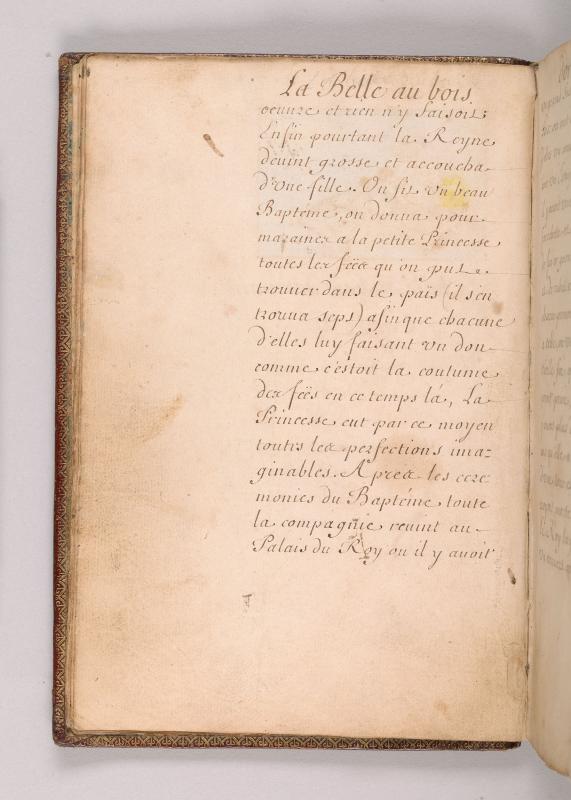 La Belle au bois
oeuure et rien n'y faisoit;
Enfin pourtant la Reyne
deuint grosse et accoucha
d'vne fille. On fit vn beau
Baptême, on donna pour
maraines a la petite Princesse
toutes les fées qu'on pust
trouuer dans le païs (il s'en
trouua sept) afin que chacune
d'elles luy faisant vn don
comme c'estoit la coutume
des fées en ce temps là, La
Princesse eut par ce moyen
toutes les perfections ima=
ginables. Apres les cere=
monies du Baptéme toute
la compagnie reuint au
Palais du Roy ou il y auoit